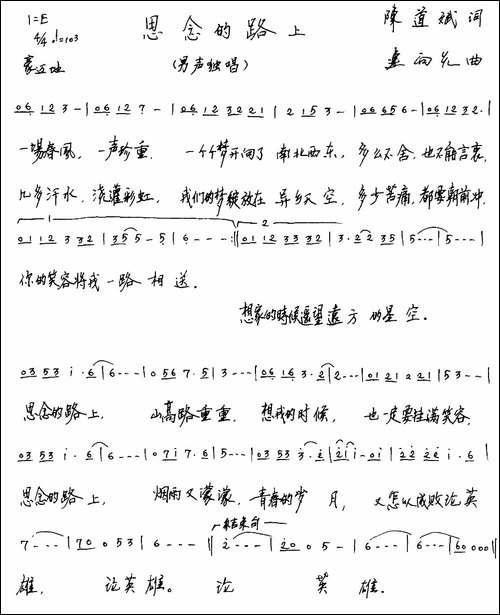 1=E
思念的路上
陳道斌 词
4/4 ♩=103
(男声独唱)
孟向元 曲
06 12 3 - | 06 12 7 - | 06 12 3221 | 2 153 - | 06 656 - | 06 1232. |
一場春風, 一声珍重. 一个个梦开向了南北西东, 多么不舍, 也不能言衷,
几多汗水, 浇灌彩虹, 我们的梦绽放在异乡天空, 多少苦痛, 都要朝前冲.
01 12 332 | 355 - 5 | 6 - - - :|| 01 12 3332 | 3·2235 | 5 - - - | 5 - - - |
你的笑容将我一路相送.
想家的時候遥望遠方的星空.
03 53 i · 6 | 6 - - - | 0 567 · 5 | 3 - - - | 06 163 · 2 | 2 - - - | 01 21221 | 53 - - |
思念的路上, 山高路重重, 想我的时候, 也一定要挂满笑容.
03 53 i · 6 | 6 - - - | 07 i7 · 6 | 5 - - - | 03 533 · i | 2ii - 0i | 22 22i · 6 |
思念的路上, 烟雨又濛濛, 青春的岁月, 又怎以成败论英
结束句
7 - - - | 70 053 | 6 - - - || i - - - | 20 05 - | 6 - - - | 6 - - - | 60000 ||
雄, 论英雄。 论英雄.